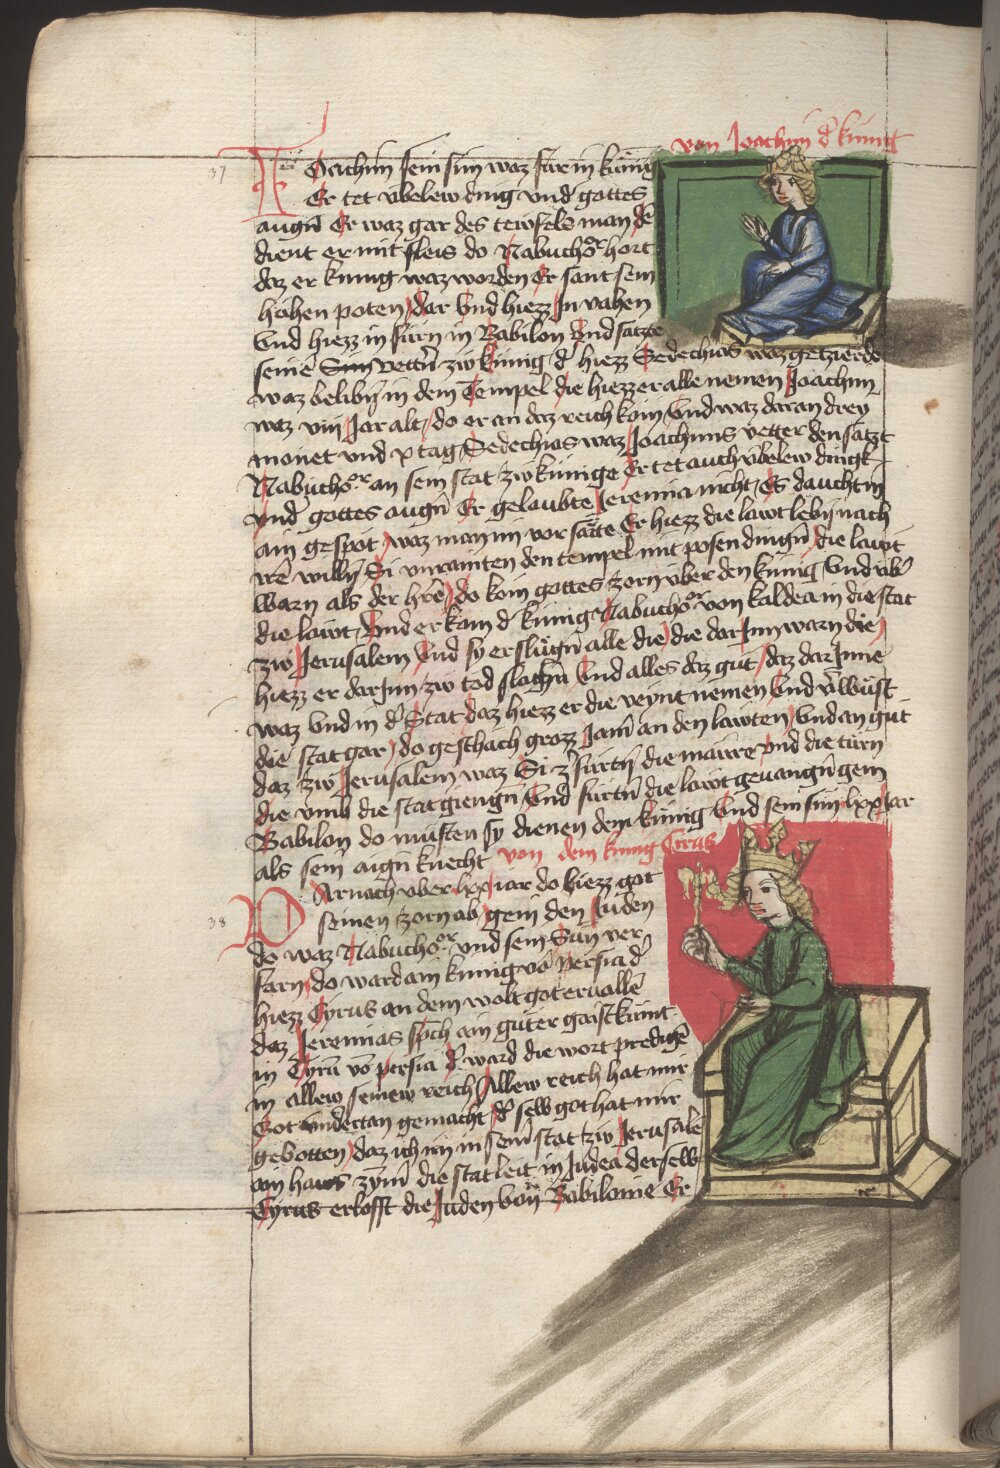 von Joachim d' kunig
37
IOachim sein sun waz für in künig
Er tet vbelew ding vnd' gottes
augn̄ Er waz gar des tewfels man dē
dient er mit fleis do Nabuchoor hort
daz er kunig waz worden Er sant sein
hohen poten dar Vnd hiezz Jn vahen
Vnd hiezz in fürn in Babilon Vnd satzte
seinē Sun vettn̄ zw künig d' hiezz Sedechias waz getzierde
waz belibn̄ in dem Tempel die hiezz er alle nemen Joachim
waz viij Jar alt do er an daz reich kom Vnd waz daran drey
monet vnd x tag Sedechias waz Joachims vetter den satzt
Nabuchoor an sein stat zw künige Er tet auch vbelew dingk
vnd' gottes augn̄ Er gelaubte Jeremia nicht Es daucht in
ain gespot waz man im vor sagte Er hiezz die lawt lebn̄ nach
irē willn̄ Si vnrainten den tempel mit posen dingn̄ die lawt
warn als der h're do kom gottes zorn vber den künig Vnd vb'
die lawt Vnd er kam d' künig Nabuchoor von kaldea in die stat
zw Jerusalem Vnd sy erslugn̄ alle die die dar Jnn warn die
hiezz er dar Jnn zw tod slachn̄ Vnd alles daz gut daz dar Jnne
waz Vnd in d' Stat daz hiezz er die veynt nemen Vnd v'wüst
die stat gar do geschach grozz Jam' an den lawten Vnd an gut
daz zw Jerusalem waz Si z'fürtn̄ die mawre vnd die türn
die vmb die stat giengn̄ Vnd furtn̄ die lawt geuangn̄ gem
Babilon do musten sy dienen dem künig Vnd sein sun lxx jar
als sein aign knecht von dem kunig Cirus
38
DArnach vber lxx iar do liezz got
seinen zorn ab gein den Juden
do waz Nabuchoor vnd sein Sun ver
farn do ward ain kunig vō persia d'
hiezz Cyrus an dem wolt got ervollē
daz Jeremias sp̄ch ain guter gaist kumt
in Cyrū vō persia d' ward die wort predigē
in allew seinew reich Allew reich hat mir
Got vndertan gemacht d' selb got hat mir
gebotten daz ich im in sein stat zw Jerusalē
ain haws zym' die stat leit in Judea derselb
Cyrus erlosst die Juden von Babilonie Er